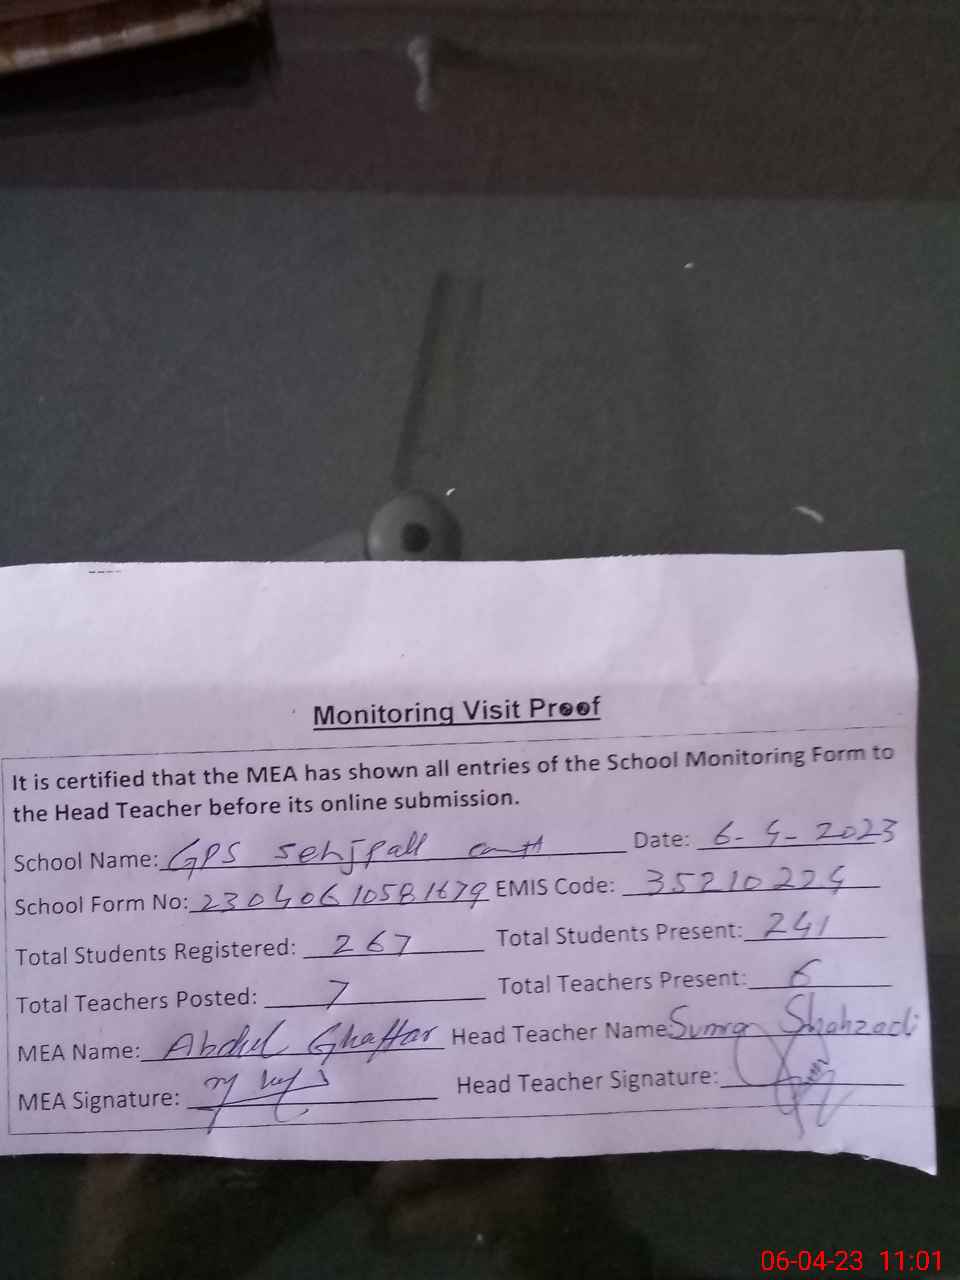 Monitoring Visit Proof
It is certified that the MEA has shown all entries of the School Monitoring Form to
the Head Teacher before its online submission.
School Name: GPS sehjpall cantt Date: 6-4-2023
School Form No: 23040610581679 EMIS Code: 35210224
Total Students Registered: 267 Total Students Present: 241
Total Teachers Posted: 7 Total Teachers Present: 6
MEA Name: Abdul Ghaffar Head Teacher Name: Sumra Shahzadi
MEA Signature: Head Teacher Signature:
06-04-23 11:01